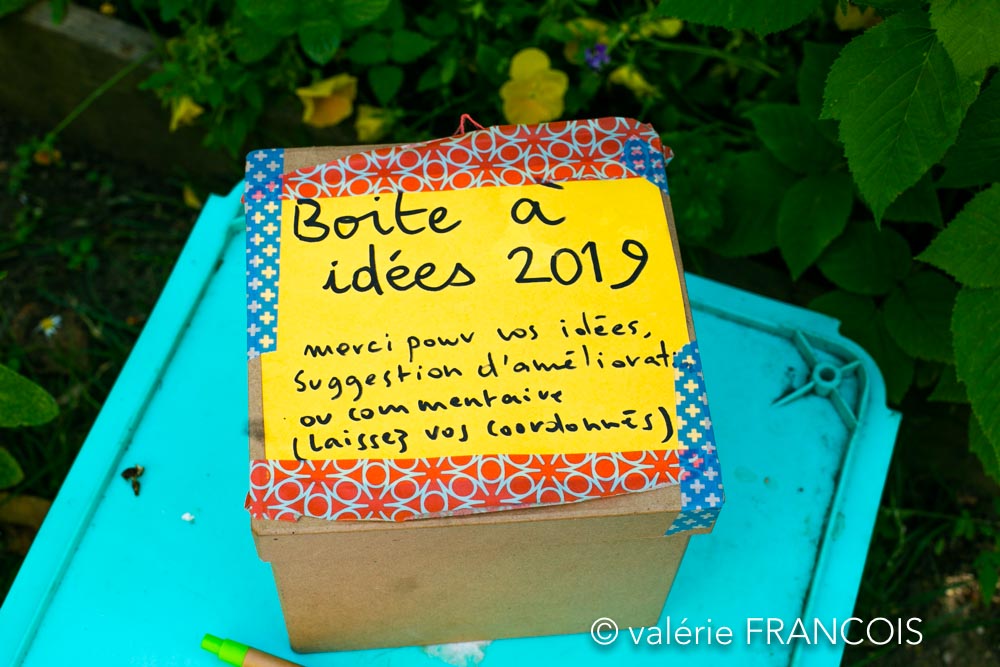 Boite à
idées 2019
merci pour vos idées,
suggestion d'améliorat
ou commentaire
(laissez vos coordonnés)
© valérie FRANCOIS